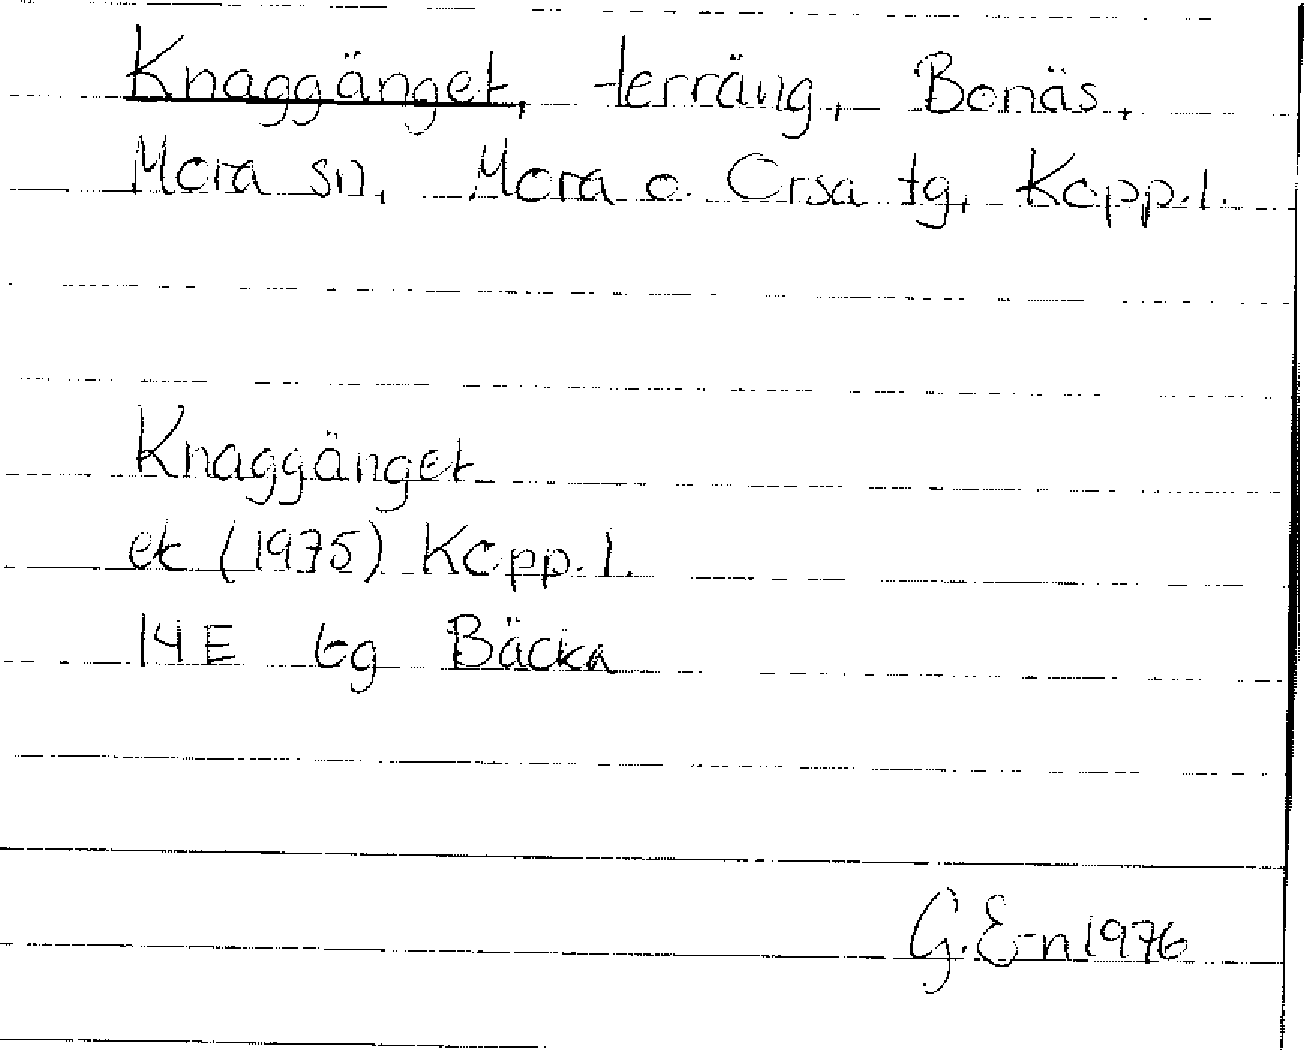 Knaggänget, terräng, Bonäs,
Mora sn, Mora o. Orsa tg, Kopp.l.
Knaggänget
ek (1975) Kopp.l.
14E 6g Bäcka
G.E-n 1976